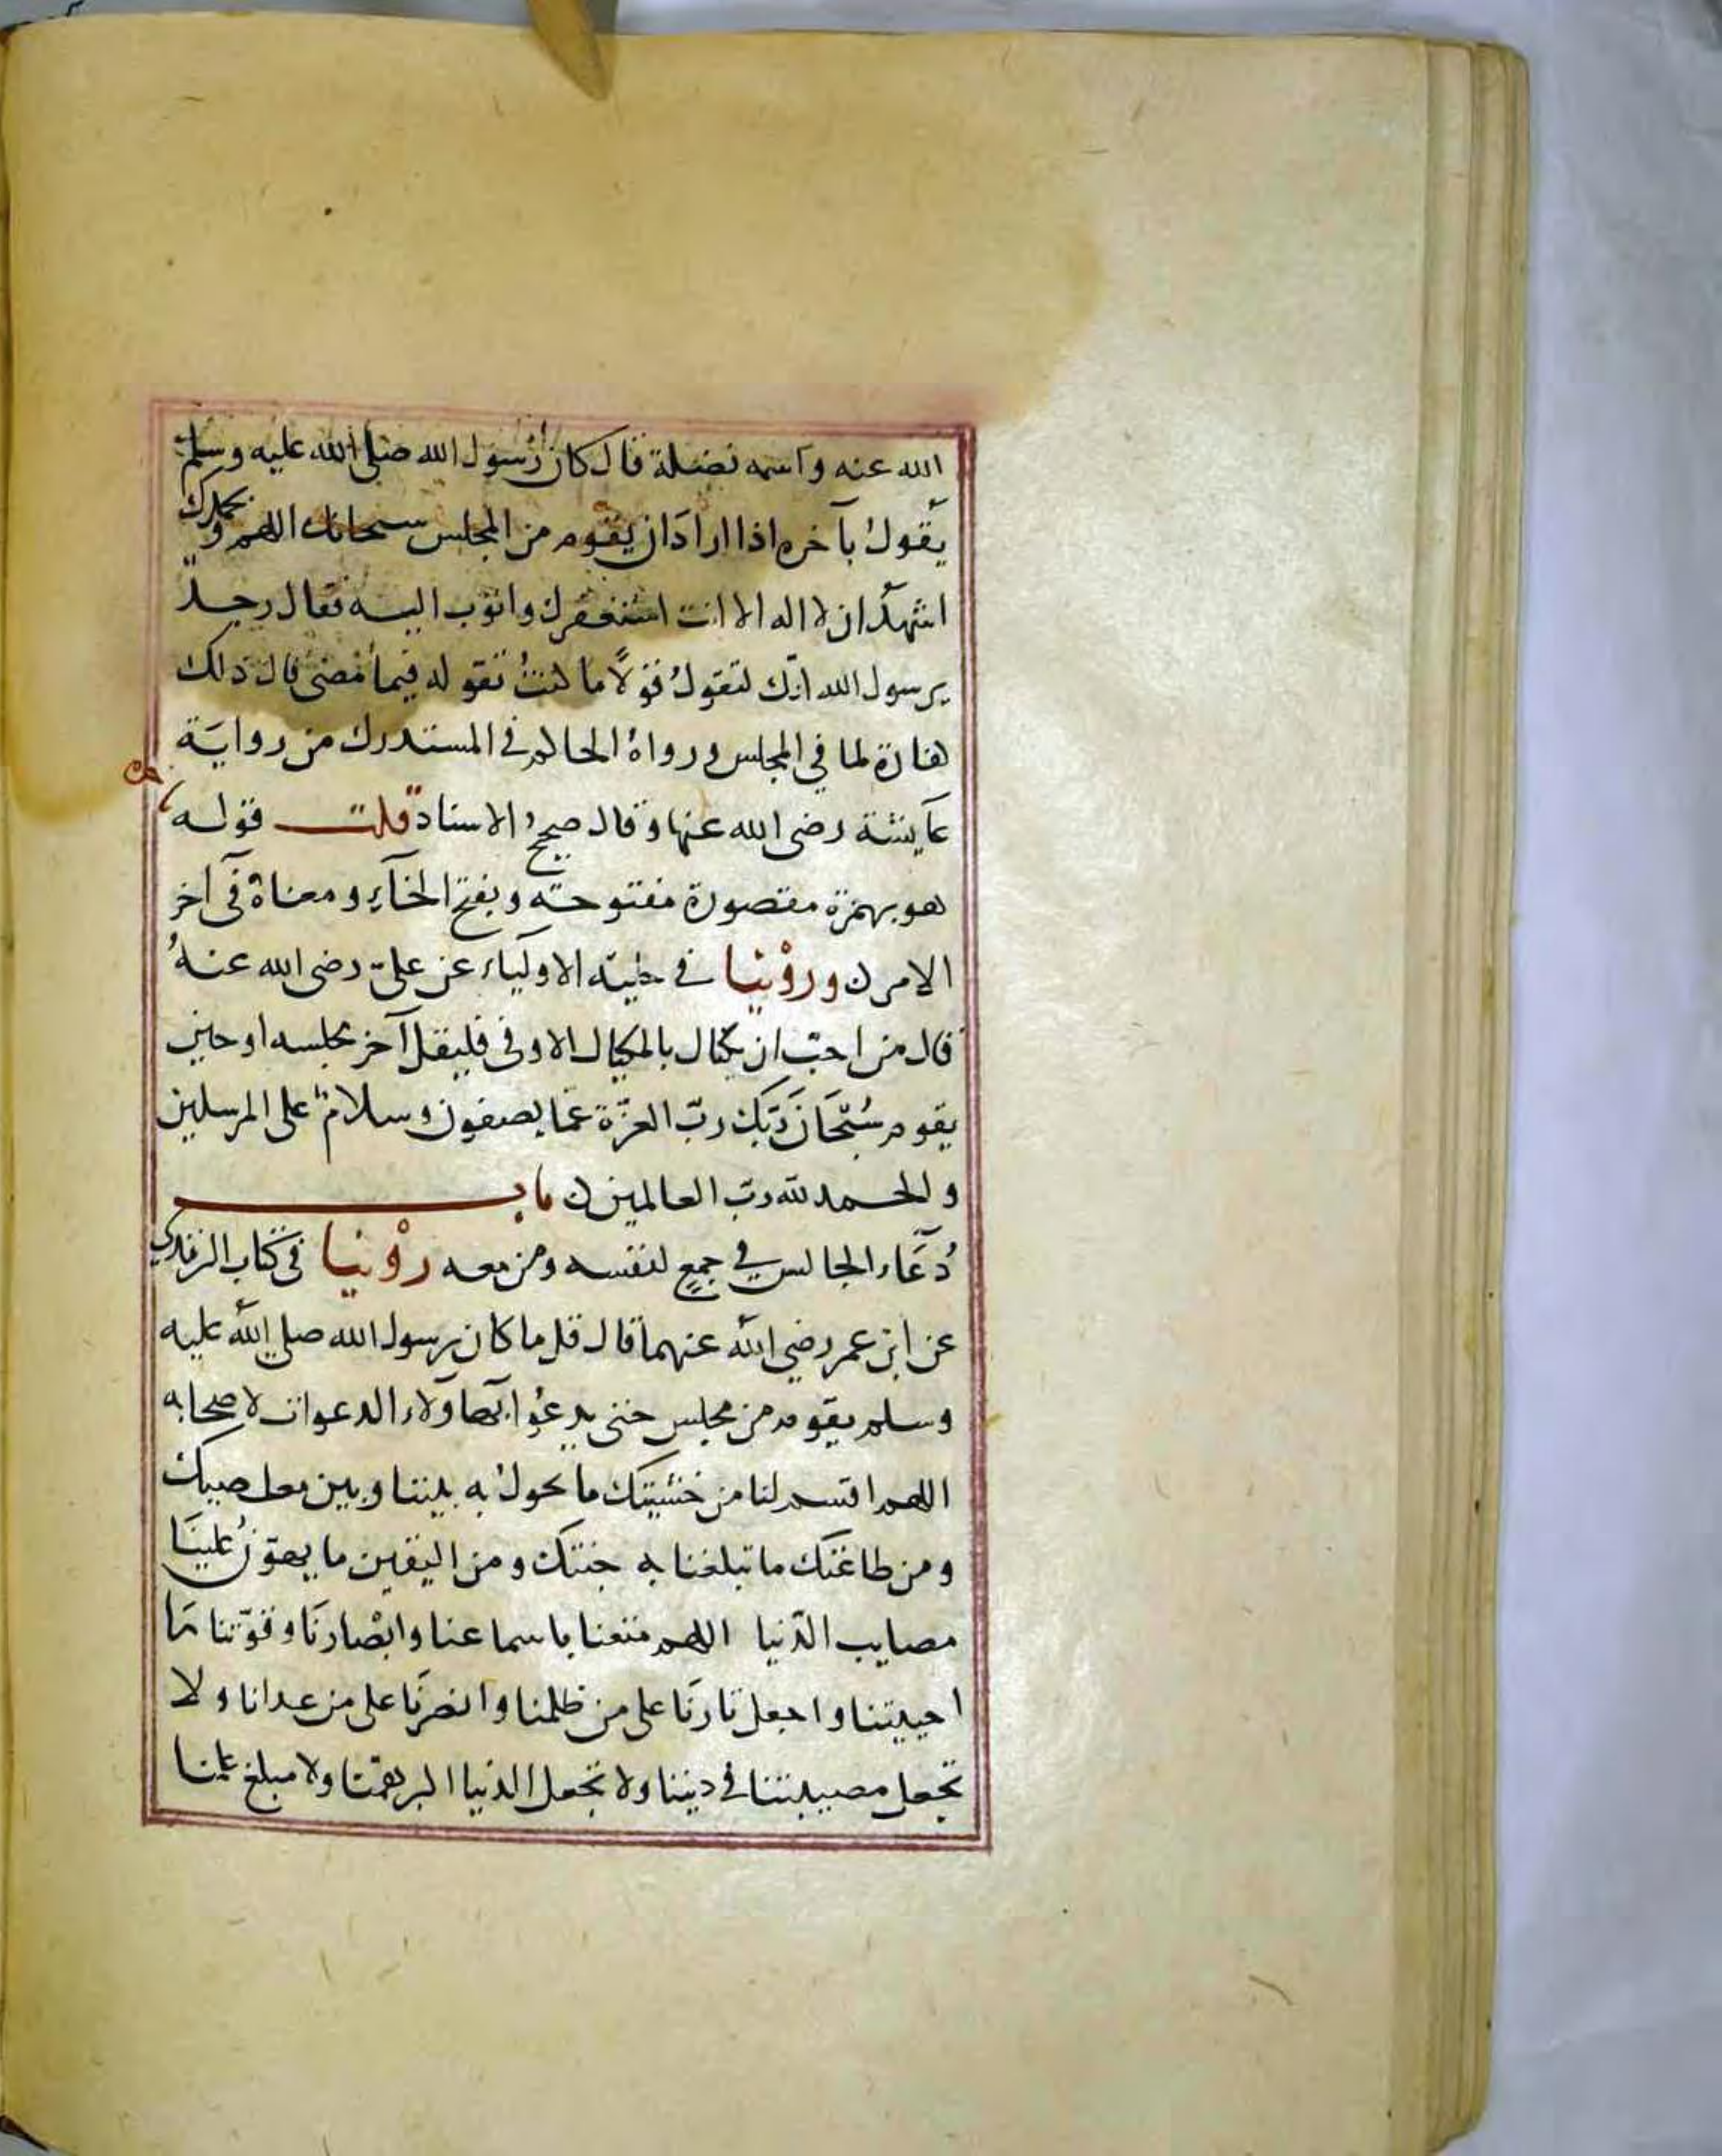 الله عنه واسمه نضلة قال كان رسول الله صلى الله عليه وسلم
يقول بآخره اذا اراد ان يقوم من المجلس سبحانك اللهم وبحمدك
اشهد ان لا اله الا انت استغفرك واتوب اليك فقال رجل
يرسول الله انك لتقول قولاً ما كنت تقوله فيما مضى قال ذلك
كفارة لما في المجلس ورواه الحاكم في المستدرك من رواية
عايشة رضى الله عنها وقال صحيح الاسناد قلت قوله
هو بهمزة مقصورة مفتوحة وبفتح الخآء ومعناه في آخر
الامر ن وروْينا في حلية الاولياء عن علىّ رضى الله عنهُ
قال من احبّ ان يكتال بالمكيال الاوفى فليقل آخر مجلسه او حين
يقوم سُبْحَانَ رَبِّكَ ربّ العزّة عمّا يصفون وسلامٌ على المرسلين
والحمد لله ربّ العالمين ن باب
دُعَاء الجالس في جمعٍ لنفسه ومن معه روْينا في كتاب الترمذي
عن ابن عمر رضي الله عنهما قال قل ما كان رسول الله صلى الله عليه
وسلم يقوم من مجلس حتى يدعُوا بهاؤلاء الدعوات لاصحابه
اللهم اقسم لنا من خشيتك ما تحول به بيننا وبين معاصيك
ومن طاعتك ما تبلغنا به جنتك ومن اليقين ما يهوّنُ علينا
مصايب الدّنيا اللهم متعنا باسماعنا وابْصارنَا وقوّتنا مَا
احييتنا واجعل ثارنَا على من ظلمنا وانصرنَا على من عدانا ولا
تجعل مصيبتنا في ديننا ولا تجعل الدنيا اكبر همّنا ولا مبلغ علمنا